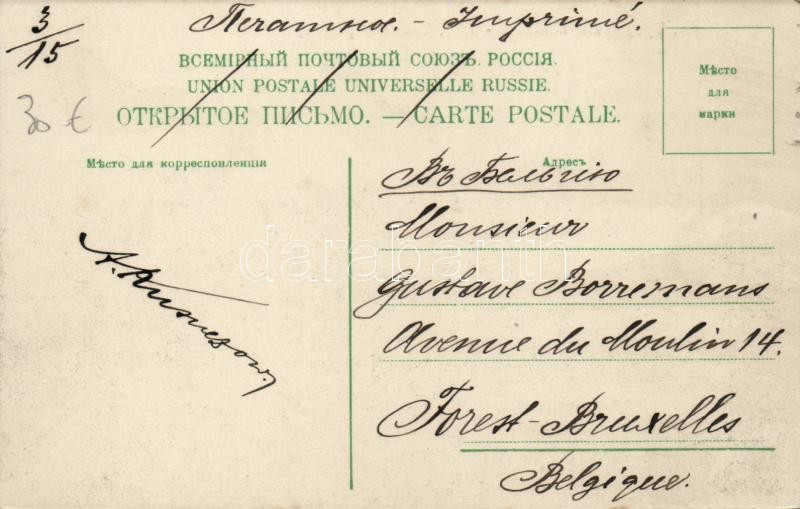 3/15
Печатное. - Imprimé.
ВСЕМІРНЫЙ ПОЧТОВЫЙ СОЮЗЪ. РОССІЯ.
UNION POSTALE UNIVERSELLE RUSSIE.
ОТКРЫТОЕ ПИСЬМО. — CARTE POSTALE.
Мѣсто
для
марки
30 €
Мѣсто для корреспонденціи
Адресъ
Въ Бельгію
Monsieur
Gustave Borremans
Avenue du Moulin 14.
Forest-Bruxelles
Belgique.
A. Kusnezow.
darabanth